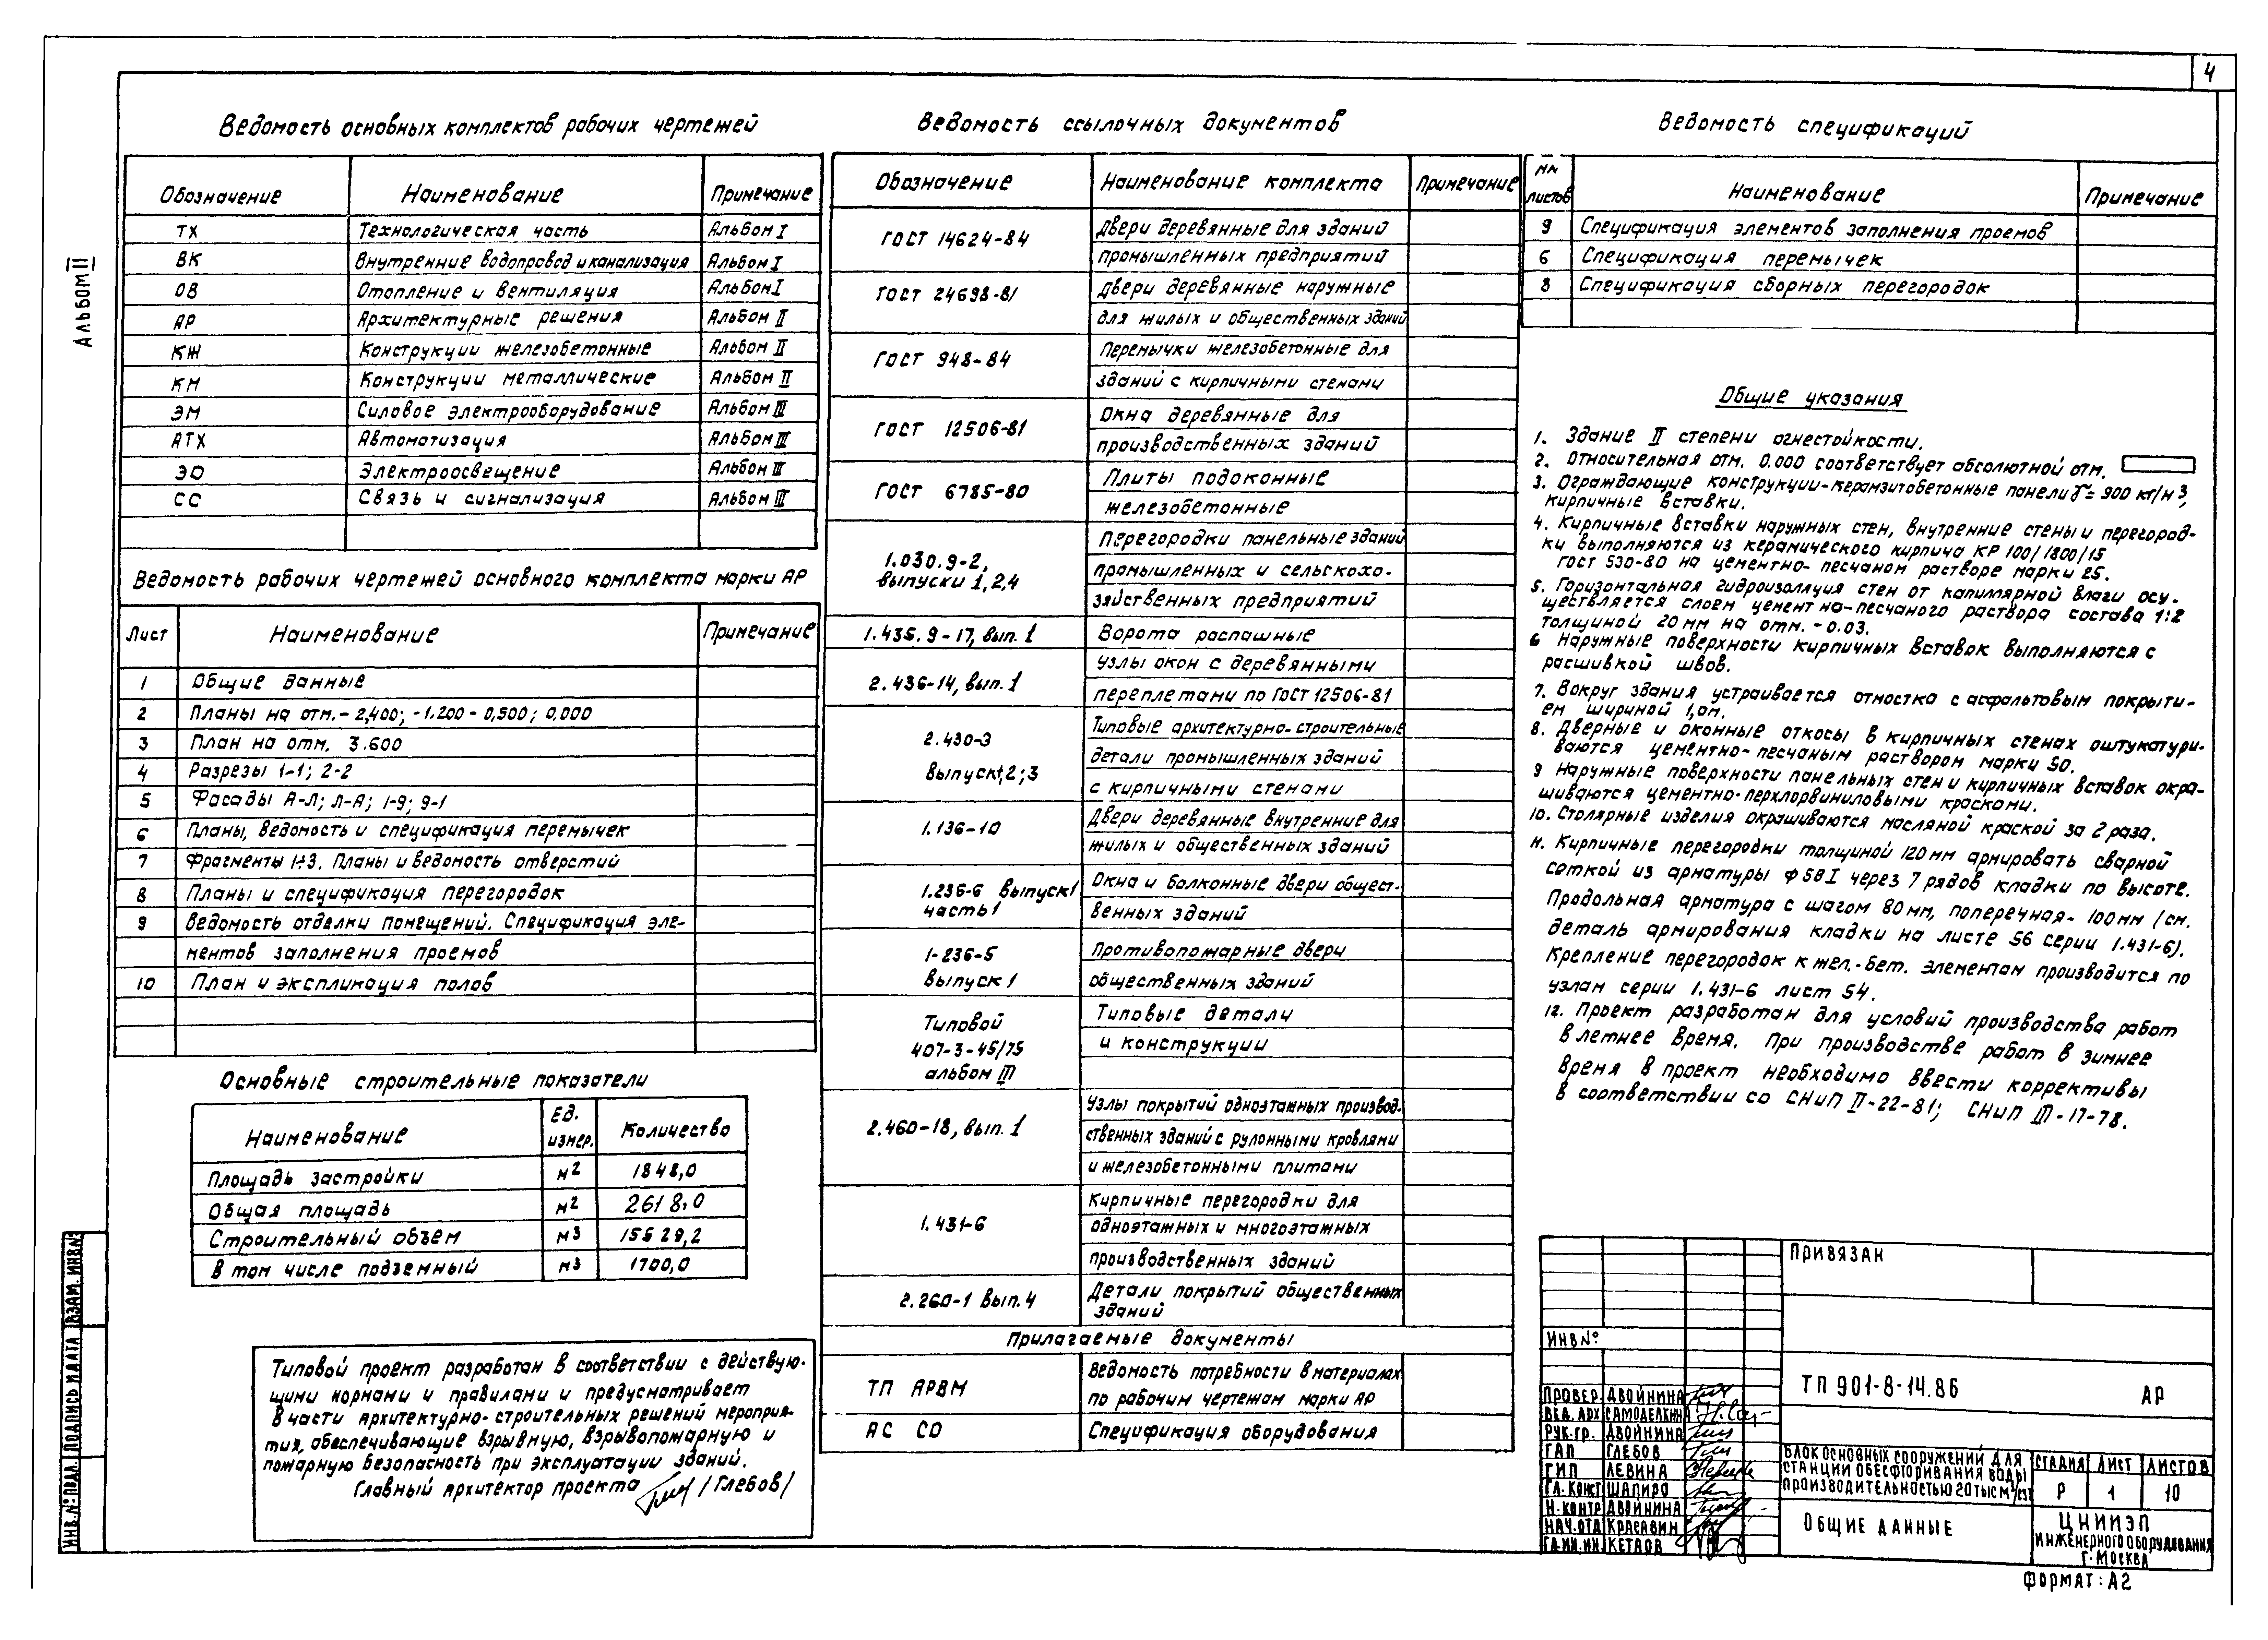 4
АЛЬБОМ II
Ведомость основных комплектов рабочих чертежей
Обозначение Наименование Примечание
ТХ Технологическая часть Альбом I
ВК Внутренние водопровод и канализация Альбом I
ОВ Отопление и вентиляция Альбом I
АР Архитектурные решения Альбом II
КЖ Конструкции железобетонные Альбом II
КМ Конструкции металлические Альбом II
ЭМ Силовое электрооборудование Альбом III
АТХ Автоматизация Альбом III
ЭО Электроосвещение Альбом III
СС Связь и сигнализация Альбом III
Ведомость рабочих чертежей основного комплекта марки АР
Лист Наименование Примечание
1 Общие данные
2 Планы на отм. -2,400; -1.200 - 0,500; 0,000
3 План на отм. 3.600
4 Разрезы 1-1; 2-2
5 Фасады А-Л; Л-А; 1-9; 9-1
6 Планы, ведомость и спецификация перемычек
7 Фрагменты 1÷3. Планы и ведомость отверстий
8 Планы и спецификация перегородок
9 Ведомость отделки помещений. Спецификация эле-
ментов заполнения проемов
10 План и экспликация полов
Основные строительные показатели
Наименование Ед. измер. Количество
Площадь застройки м2 1848,0
Общая площадь м2 2618,0
Строительный объем м3 15529,2
В том числе подземный м3 1700,0
Типовой проект разработан в соответствии с действую-
щими нормами и правилами и предусматривает
в части архитектурно-строительных решений мероприя-
тия, обеспечивающие взрывную, взрывопожарную и
пожарную безопасность при эксплуатации зданий.
Главный архитектор проекта /Глебов/
Ведомость ссылочных документов
Обозначение Наименование комплекта Примечание
ГОСТ 14624-84 Двери деревянные для зданий
промышленных предприятий
ГОСТ 24698-81 Двери деревянные наружные
для жилых и общественных зданий
ГОСТ 948-84 Перемычки железобетонные для
зданий с кирпичными стенами
ГОСТ 12506-81 Окна деревянные для
производственных зданий
ГОСТ 6785-80 Плиты подоконные
железобетонные
1.030.9-2, Перегородки панельные зданий
выпуски 1,2,4 промышленных и сельскохо-
зяйственных предприятий
1.435.9-17, вып. 1 Ворота распашные
2.436-14, вып. 1 Узлы окон с деревянными
переплетами по ГОСТ 12506-81
2.430-3 Типовые архитектурно-строительные
выпуск 1,2;3 детали промышленных зданий
с кирпичными стенами
1.136-10 Двери деревянные внутренние для
жилых и общественных зданий
1.236-6 выпуск 1 Окна и балконные двери общест-
часть 1 венных зданий
1-236-5 Противопожарные двери
выпуск 1 общественных зданий
Типовой Типовые детали
407-3-45/75 и конструкции
альбом III
2.460-18, вып. 1 Узлы покрытий одноэтажных производ-
ственных зданий с рулонными кровлями
и железобетонными плитами
1.431-6 Кирпичные перегородки для
одноэтажных и многоэтажных
производственных зданий
2.260-1 вып. 4 Детали покрытий общественных
зданий
Прилагаемые документы
ТП АРВМ Ведомость потребности в материалах
по рабочим чертежам марки АР
АС СО Спецификация оборудования
Ведомость спецификаций
NN листов Наименование Примечание
9 Спецификация элементов заполнения проемов
6 Спецификация перемычек
8 Спецификация сборных перегородок
Общие указания
1. Здание II степени огнестойкости.
2. Относительная отм. 0.000 соответствует абсолютной отм.
3. Ограждающие конструкции-керамзитобетонные панели γ=900 кг/м3,
кирпичные вставки.
4. Кирпичные вставки наружных стен, внутренние стены и перегород-
ки выполняются из керамического кирпича КР 100/1800/15
ГОСТ 530-80 на цементно-песчаном растворе марки 25.
5. Горизонтальная гидроизоляция стен от капиллярной влаги осу-
ществляется слоем цементно-песчаного раствора состава 1:2
толщиной 20 мм на отм. -0.03.
6 Наружные поверхности кирпичных вставок выполняются с
расшивкой швов.
7. Вокруг здания устраивается отмостка с асфальтовым покрыти-
ем шириной 1,0м.
8. Дверные и оконные откосы в кирпичных стенах оштукатури-
ваются цементно-песчаным раствором марки 50.
9 Наружные поверхности панельных стен и кирпичных вставок окра-
шиваются цементно-перхлорвиниловыми красками.
10. Столярные изделия окрашиваются масляной краской за 2 раза.
11. Кирпичные перегородки толщиной 120 мм армировать сварной
сеткой из арматуры φ5ВI через 7 рядов кладки по высоте.
Продольная арматура с шагом 80 мм, поперечная - 100 мм (см.
деталь армирования кладки на листе 56 серии 1.431-6).
Крепление перегородок к жел.-бет. элементам производится по
узлам серии 1.431-6 лист 54.
12. Проект разработан для условий производства работ
в летнее время. При производстве работ в зимнее
время в проект необходимо ввести коррективы
в соответствии со СНиП II-22-81; СНиП III-17-78.
ПРИВЯЗАН
ИНВ №
ТП 901-8-14.86 АР
ПРОВЕР. ДВОЙНИНА
ВЕД. АРХ САМОДЕЛКИНА
РУК.ГР. ДВОЙНИНА
ГАП ГЛЕБОВ
ГИП ЛЕВИНА
ГЛ. КОНСТ ШАПИРО
Н.КОНТР ДВОЙНИНА
НАЧ.ОТД КРАСАВИН
ГЛ.ИН.ИН. КЕТАОВ
БЛОК ОСНОВНЫХ СООРУЖЕНИЙ ДЛЯ
СТАНЦИИ ОБЕСФТОРИВАНИЯ ВОДЫ
ПРОИЗВОДИТЕЛЬНОСТЬЮ 20 ТЫС М³/СУТ
СТАДИЯ ЛИСТ ЛИСТОВ
Р 1 10
ОБЩИЕ ДАННЫЕ
ЦНИИЭП
ИНЖЕНЕРНОГО ОБОРУДОВАНИЯ
Г. МОСКВА
ФОРМАТ: А2
ИНВ. № ПОДЛ. ПОДПИСЬ И ДАТА ВЗАМ. ИНВ №